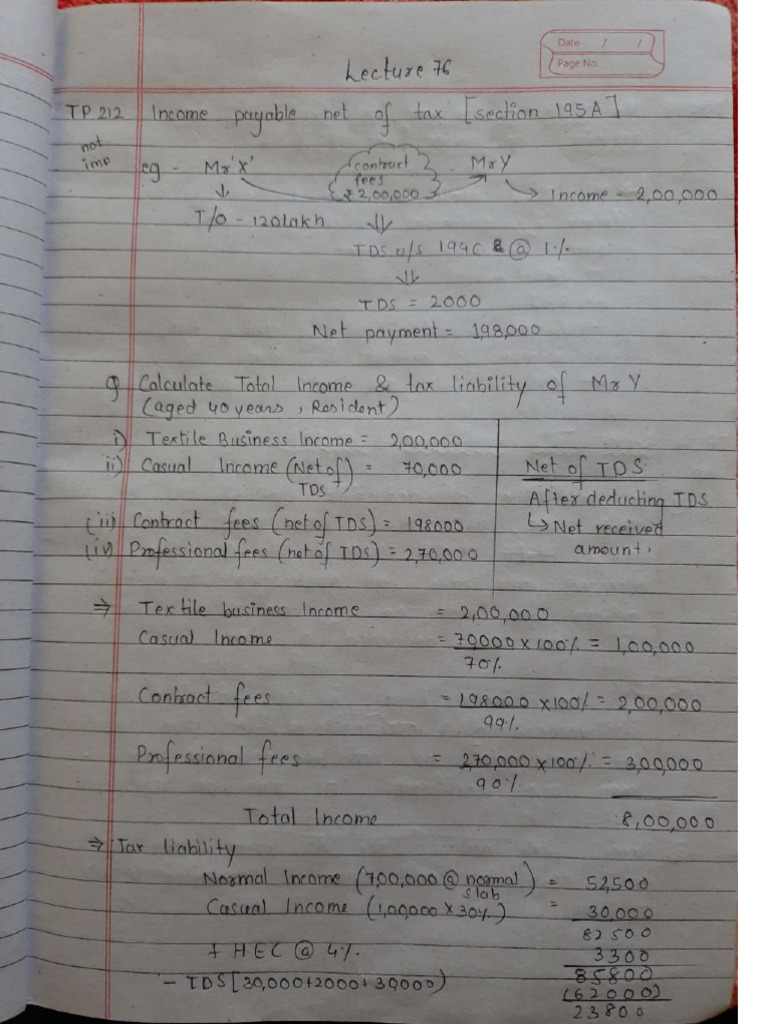 Lecture 76
Date / /
Page No.
TP 212 Income payable net of tax [section 195A]
not imp
eg - Mr 'X' contract fees ₹ 2,00,000 Mr Y
→ Income - 2,00,000
T/O - 120 lakh
TDS u/s 194C @ 1%.
TDS = 2000
Net payment = 198,000
Q Calculate Total Income & tax liability of Mr Y
(aged 40 years, Resident)
i) Textile Business Income = 2,00,000
ii) Casual Income (Net of TDS) = 70,000
(iii) Contract fees (net of TDS) = 198000
(iv) Professional fees (net of TDS) = 2,70,000
Net of TDS
After deducting TDS
↳ Net received
amount.
⇒ Textile business Income = 2,00,000
Casual Income = 70000 x 100% = 1,00,000
70%
Contract fees = 198000 x 100% = 2,00,000
99%
Professional fees = 270,000 x 100% = 3,00,000
90%
Total Income 8,00,000
⇒ Tax liability
Normal Income (7,00,000 @ normal slab) = 52,500
Casual Income (1,00,000 x 30%) = 30,000
82500
+ HEC @ 4%. 3300
85800
- TDS [30,000+2000+30000) (62000)
23800